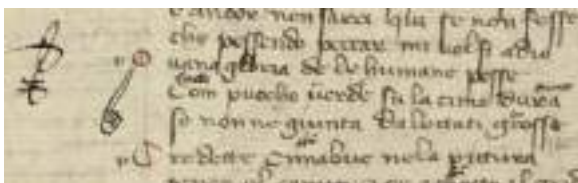 E ancor non sarei qui se non fosse
che possendo peccar mi uolsi a dio
O uana gloria de le humane posse
Com puocho uerde su la cima dura
se non ne giunta da letati grosse
C redette Cimabue ne la pictura